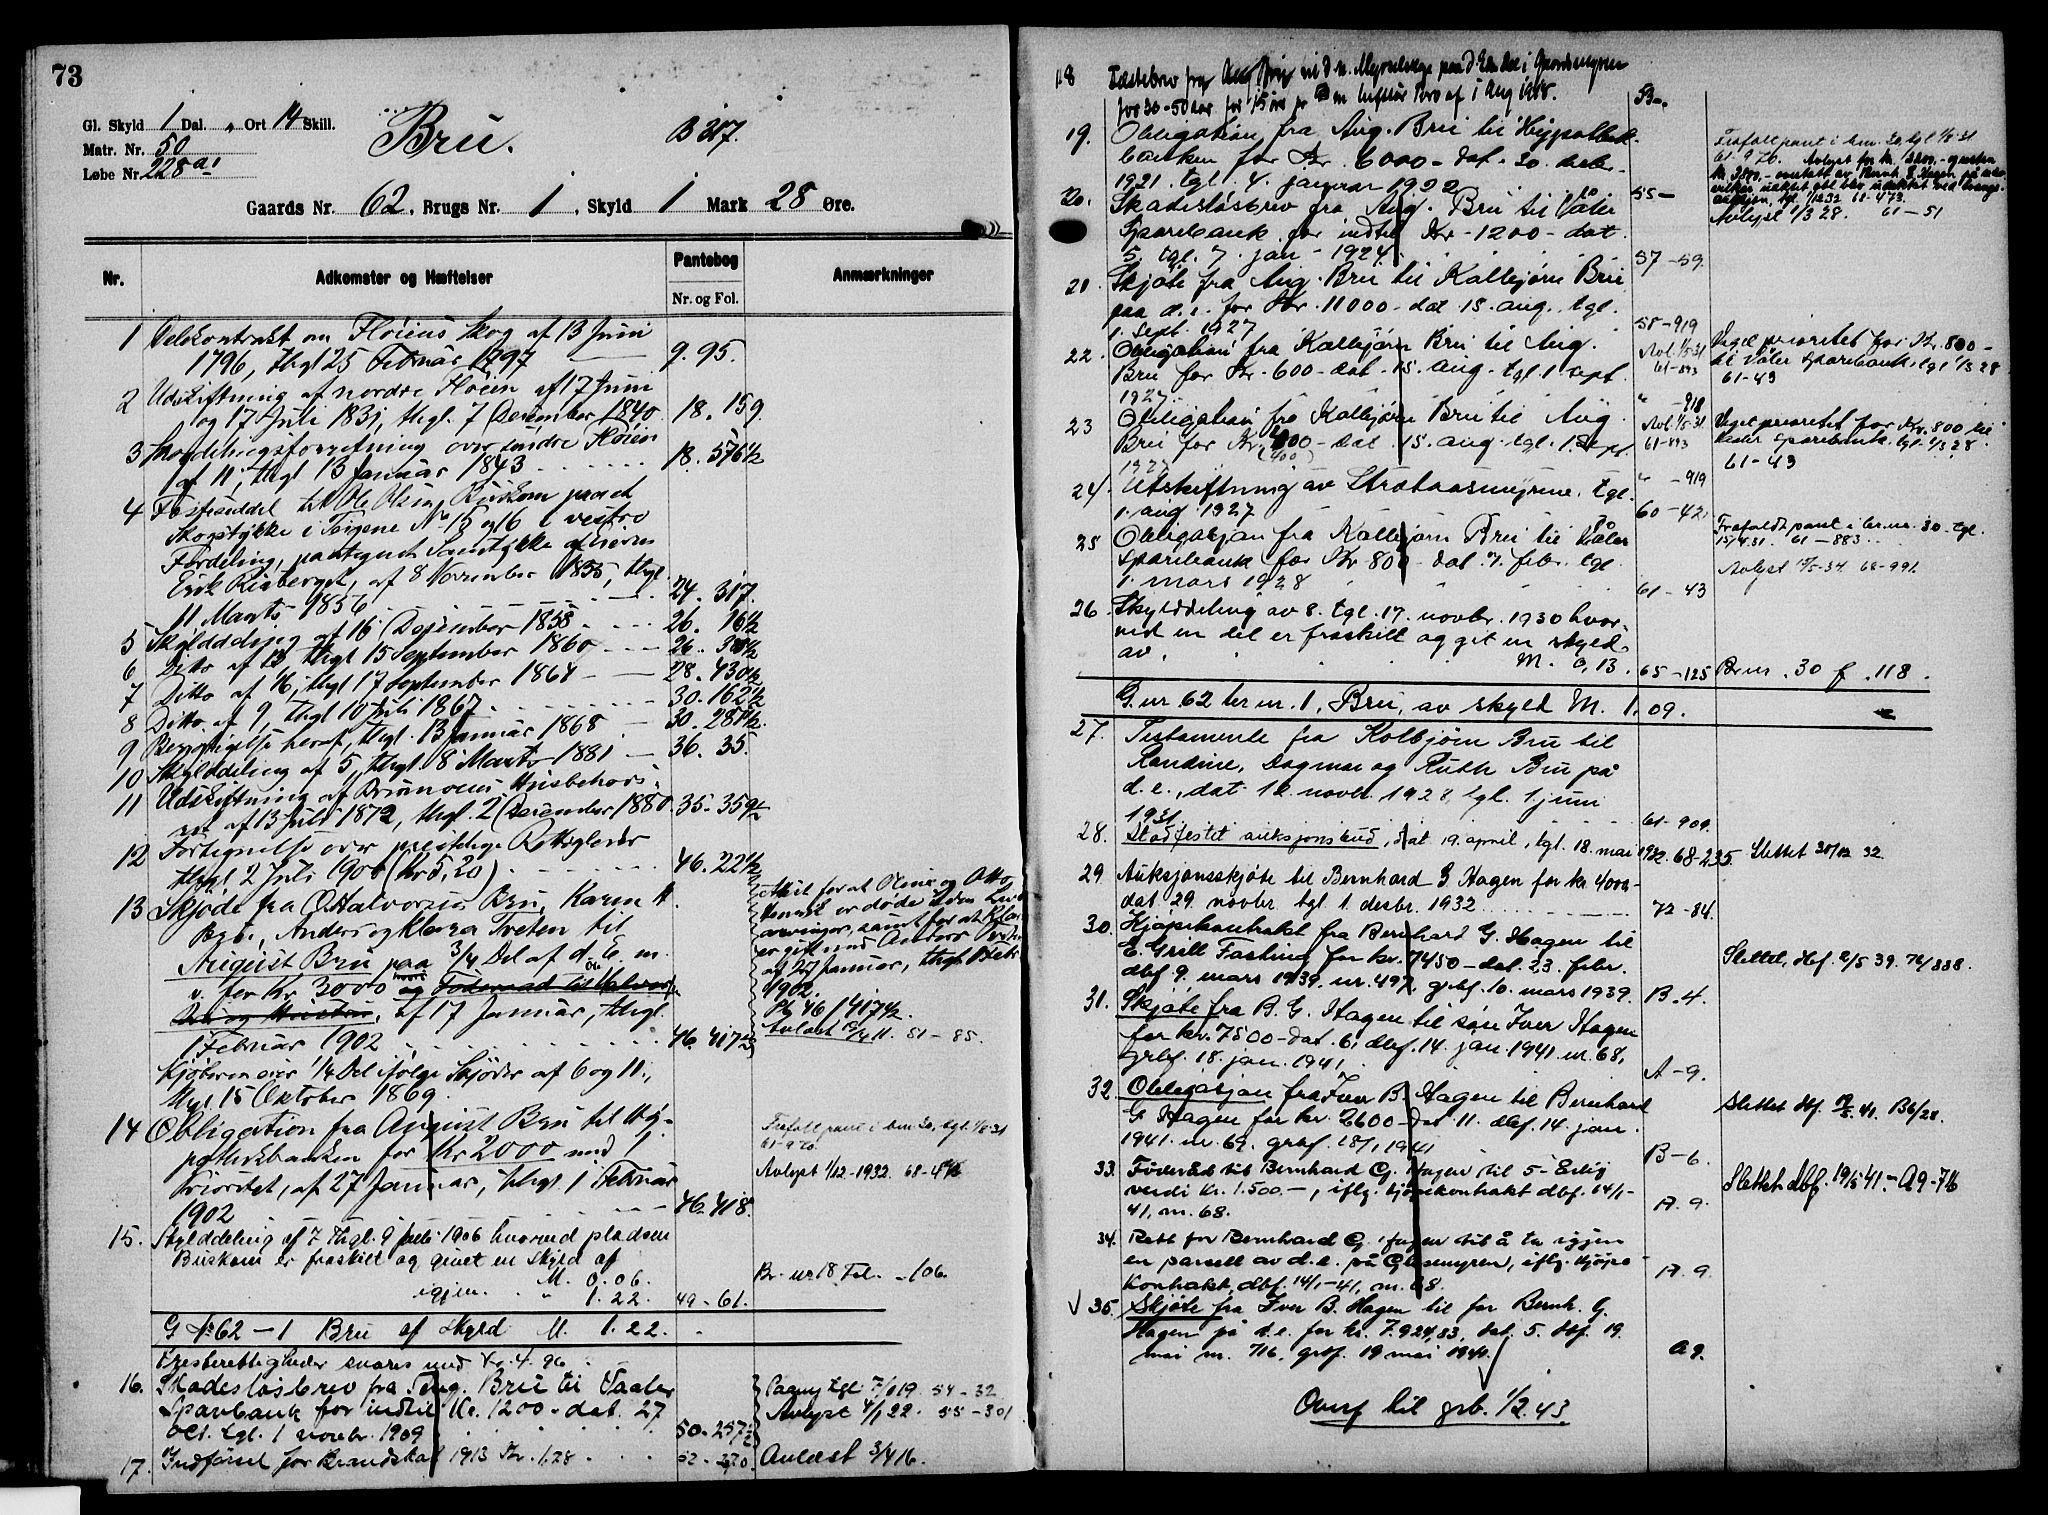 73
Gl. Skyld 1 Dal. „ Ort 14 Skill.
Matr. Nr. 50
Løbe Nr. 228 a1
Bru.
B 217.
Gaards Nr. 62, Brugs Nr. 1, Skyld 1 Mark 28 Øre.
Nr.
Adkomster og Hæftelser
Pantebog
Nr. og Fol.
Anmærkninger
1 Delekontrakt om Fløiens Skog af 13 Juni
1796, thgl 25 Februar 1797 9. 95.
2 Udskiftning af nordre Fløien af 17 Juni
og 17 Juli 1831, thgl. 7 December 1840. 18. 159.
3 Skovdelingsforretning over søndre Fløien
af 11, thgl 13 Januar 1843 18. 576½
4 Fæsteseddel til Ole Olsen Buskom paa et
Skogstykke i Teigene No 15 og 16 i vestre
Fordeling,
Erik Risberget, af 8 November 1855, thgl.
11 Marts 1856 24. 317.
5 Skylddeling af 16 December 1858 26. 16½
6 Ditto af 13 thgl 15 September 1860
7 Ditto af 16, thgl 17 September 1864 28. 430½
8 Ditto af 9, thgl 10 Juli 1867 30. 162½
9 Berigtigelse heraf, thgl. 13 Januar 1868 30. 281½
10 Skylddeling af 5, thgl. 8 Marts 1881 36. 35.
11 Udskiftning af Brumoens Husbehovs-
af 13 Juli 1872, thgl. 2 December 1880. 35. 359½
12 Fortegnelse over prestelige Rettigheder
thgl 2 Juli 1900 (Kr 5,20) 46. 22½
13 Skjøde fra O. Halvorsen Bru, Karen H.
Bybe, Anders og Klara Tveten til
August Bru paa 3/4 Del af d. E. m.
v. for Kr 3000 og Føderaad til Halvor
Bru og Hustru, af 17 Januar, thgl.
1 Februar 1902 46. 417½
Attest for at Oline og Otto
er døde uden Livs-
arvinger, samt for at Klara
er gift med Anders Tveten
af 27 Januar, thgl 1 Febr.
1902.
Pb 46 f 417½
Avlæst 51 – 85.
Kjøberen eier 1/4 Del ifølge Skjøder af 6 og 11,
thgl 15 Oktober 1869.
14 Obligation fra August Bru til Hy-
pothekbanken for Kr 2000 med 1
Prioritet, af 27 Januar, thgl 1 Februar
1902 46. 418.
Frafalt pant i brn 30, tgl. 1/5 31
61-920.
Avlyst 1/12-1932. 68-
15. Skylddeling af 7 thgl. 9 1906 hvorved pladsen
Buskom er fraskilt og givet en Skyld af
M. 0.06.
igjen. „ 1.22. 49 - 61.
Br. nr 18 Fol. - 106.
G № 62 – 1 Bru af Skyld M. 1.22.
Presterettigheder svares med Kr. 4.96
16. Skadesløsbrev fra Aug. Bru til Vaaler
Sparebank for indtil Kr. 1200 - dat. 27
oct. tgl. 1 novebr. 1909 50-257½
tgl 54 - 32
Avlyst 4/1 22. 55 - 301
17. Indførsel for Brandskat 1913 Kr. 1,28 52 - 270.
Avlæst 3/4 16.
18 Fæstebrev fra Aug. Bru til D. n. Myrselskap paa d. E. del i Gaardsmyren
for 30-50 aar for 15 øre pr af 1 Aug 1918.
19. Obligation fra Aug. Bru til Hypothek-
banken for Kr. 6000 - dat. 30. debr.
1921. tgl. 4. januar 1922 55 –
Frafalt pant i brn. 30, tgl 1/5 31
61-920. Avlyst for kr.
Avlyst 1/3 28. 61 – 51
20. Skadesløsbrev fra Aug. Bru til Våler
Sparebank for indtil Kr - 1200 - dat
5. tgl. 7. jan - 1924. 57 - 59.
21. Skjøte fra Aug. Bru til Kalbjørn Bru
paa d. e. for Kr. 11000 - dat 15. aug. tgl.
1. sept. 1927 58 - 919
22. Obligation fra Kalbjørn Bru til Aug.
Bru for Kr. - 600 - dat. 15. aug. tgl. 1. sept.
1927. „ - 918
Avl. 1/5 31
61-893
Veget prioritet for Kr. 800 -
til Våler sparebank, tgl 1/3 28
61-43
23 Obligation fra Kalbjørn Bru til Aug.
Bru for Kr. 400 - dat. 15. aug - tgl. 1. sept.
(400)
1927 „ - 919
Avl. 1/5 31.
61-893
Veget prioritet for Kr. 800 til
Våler sparebank. tgl. 1/3 28.
61-43
24. Utskiftning av Strætaasmyrene. tgl.
1. aug 1927 60 - 42.
25 Obligasjon fra Kalbjørn Bru til Våler
sparebank for Kr 800 - dat. 7. febr. tgl.
1. mars 1928 61 - 43
Frafaldt pant i br. nr. 30 - tgl.
15/4 31. 61 – 883
Avlyst 15/5-34. 68-991.
26. Skylddeling av 8. tgl. 17. novbr. 1930 hvor-
ved en del er fraskilt og git en skyld
av. M. 0,13. 65 - 125
Br. nr. 30 f. 118.
G. nr 62 br. nr. 1, Bru, av skyld M. 1.09.
27. Testamente fra Kolbjørn Bru til
Randine, Dagmar og Ruth Bru på
d. e., dat. 12. novbr. 1928, tgl. 1 juni
1931. 61- 909.
28. Stadfestet auksjonsbud, dat 19. april, tgl. 18. mai 1932. 68-235.
Slettet 30/12 32.
29 Auksjonsskjøte til Bernhard G Hagen for kr 4000-
dat. 29. novbr. tgl 1. desbr. 1932 72 - 84.
30. Kjøpekontrakt fra Bernhard G. Hagen til
E. Grill Fasting for kr. 7450 - dat. 23. febr.
dbf 9. mars 1939. nr. 497, grbf. 10. mars 1939. B - 4.
Slettet, dbf. 2/5 39. 76/338.
31. Skjøte fra B. G. Hagen til søn Iver Hagen
for kr. 7500 - dat. 6, dbf. 14. jan. 1941 nr. 68,
grbf. 18. jan. 1941. A - 9.
32. Obligasjon fra Iver B. Hagen til Bernhard
G. Hagen for kr. 2600 - dat 11. dbf. 14. jan.
1941. nr. 69. grbf. 18/1 1941 B - 6.
Slettet dbf. 19/5 41. B6/28.
33. Føderåd til Bernhard G. Hagen til 5-årlig
verdi kr. 1.500.–, iflg. kjøpekontrakt dbf. 14/1-
41, nr. 68. A. 9.
Slettet dbf. 19/5 41. – A9-716
34. Rett for Bernhard G. Hagen til å ta igjen
en parsell av d. e. på Glæsemyren, iflg. kjøpe-
kontrakt, dbf. 14/1-41, nr. 68. A. 9.
√ 35. Skjøte fra Iver B. Hagen til far Bernh. G.
Hagen på d. e. for kr. 7.924,83, dat. 5. dbf. 19.
mai nr. 716. grbf. 19 mai 1941. A 9.
Overf til grb. 1/2.43